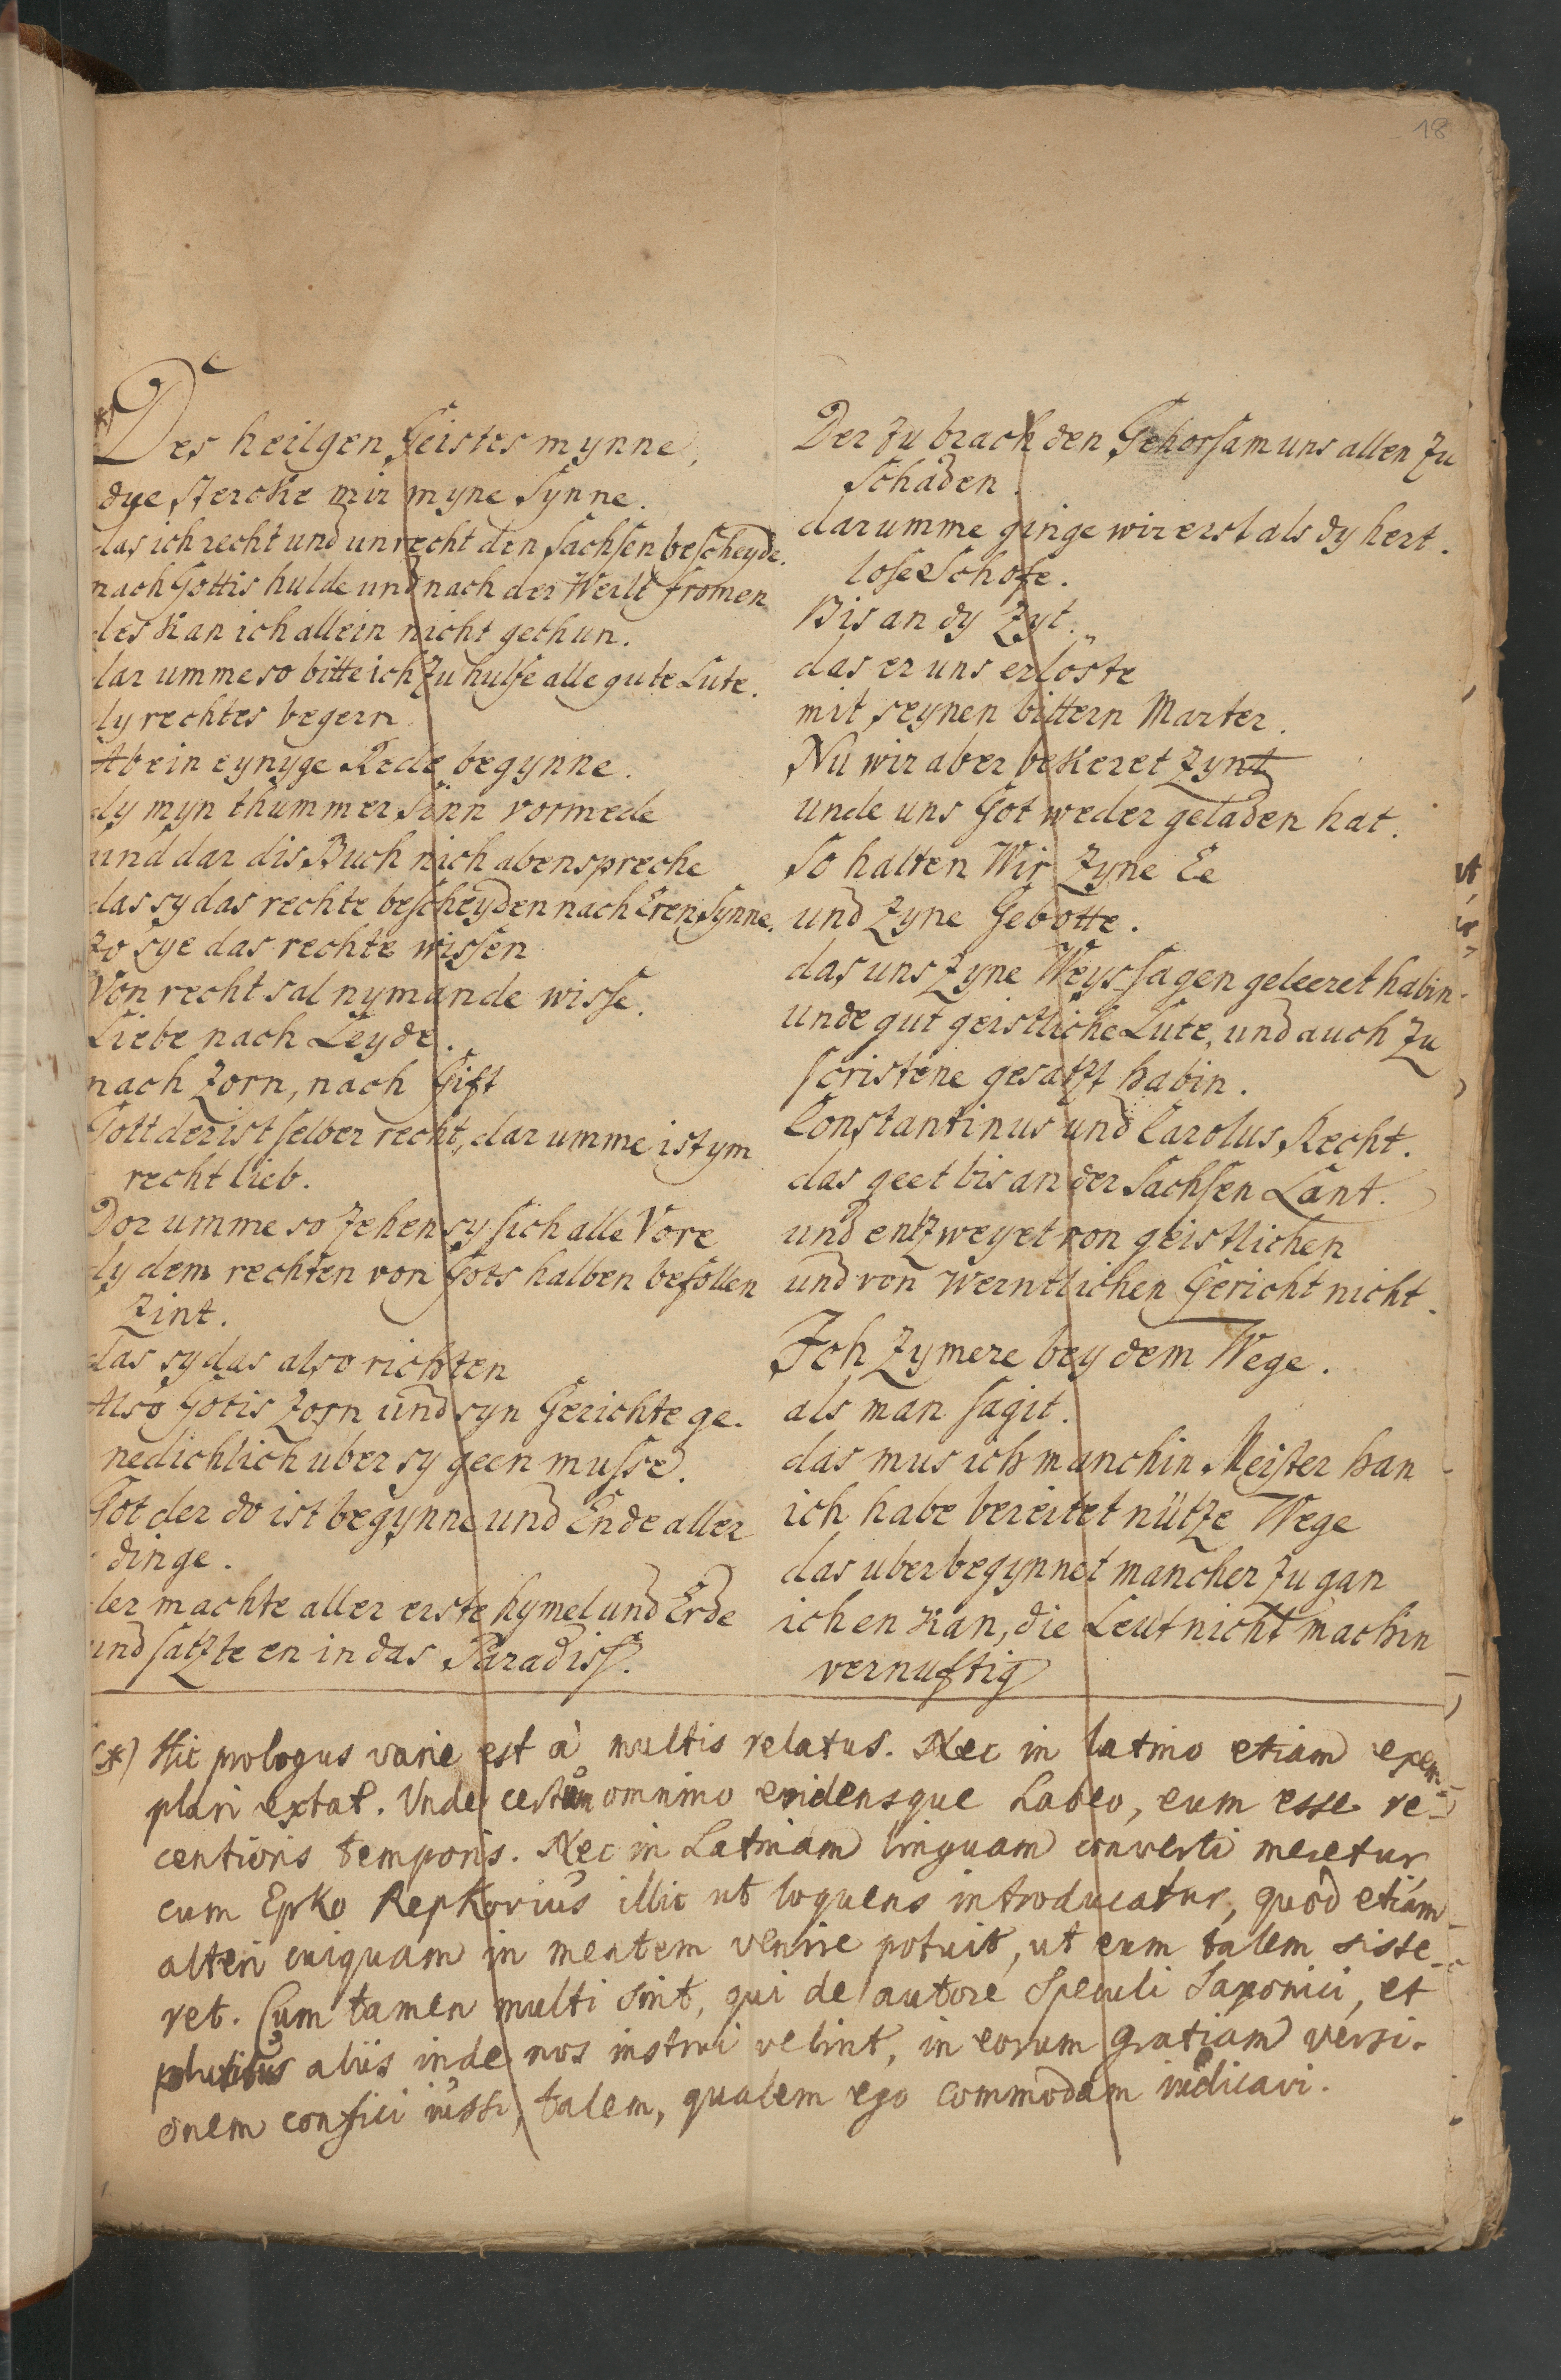 18
*) Des heilgen Geistes mynne,
dye stercke mir myne Synne.
das ich recht und unrecht den Sachsen bescheyde.
nach Gottis hulde und nach der Werlt fromen
des kan ich allein nicht gethun.
dar umme so bitte ich zu hulfe alle gute Lute.
dy rechtes begern.
Ab ein eynyge Rede begynne.
dy myn thummer Sinn vormede
und dar dis Buch nich abenspreche
das sy das rechte bescheyden nach Eren Synne.
zo sye das rechte wissen
Von recht sal nymande wisse.
Liebe nach Leyde.
nach Zorn, nach Gift
Gott der ist selber recht, dar umme ist ym
recht lieb.
Dor umme so zehen sy sich alle Vore
dy dem rechten von Gots halben befollen
zint.
das sy das also richten
Also Gotis Zorn und syn Gerichte ge-
nedichlich uber sy geen musse.
Got der do ist begynne und Ende aller
dinge.
der machte aller erste hymel und Erde
und satzte en in das Paradiss.
Der zu brach den Gehorsam uns allen zu
Schaden.
darumme ginge wir erst als dy hert-
lose Schofe.
Bis an dy Zyt.
das er uns erloste
mit seynen bittern Marter.
Nu wir aber bekeret zynt
unde uns Got weder geladen hat.
So halten Wir Zyne Ee
und Zyne Gebotte.
das uns Zyne Weyssagen geleeret habin.
unde gut geistliche Lute, und auch zu
scristene gesatzt habin.
Constantinus und Carolus Recht.
das geet bis an der Sachsen Lant.
und entzweyet von geistlichen
und von werntlichen Gericht nicht.
Ich Zymere bey dem Wege.
als man sagit.
das mus ich manchin Meister han
ich habe bereitet nütze Wege
das uber begynnet mancher zu gan
ich en kan, die Leut nicht machin
vernuftig
(*) Hic prologus varie est à multis relatus. Nec in latino etiam exem-
plari extat. Unde certum omnino evidensque habeo, eum esse re-
centioris temporis. Nec in Latinam linguam converti meretur
cum Epko Repkovius illic ut loquens introducatur, quod etiam
alteri cuiquam in mentem venire potuit, ut eum talem siste-
ret. Cum tamen multi sint, qui de autore Speculi Saxonici, et
pluribus aliis inde nos instrui velint, in eorum gratiam versi-
onem confici iussi, talem, qualem ego commodam iudicavi.